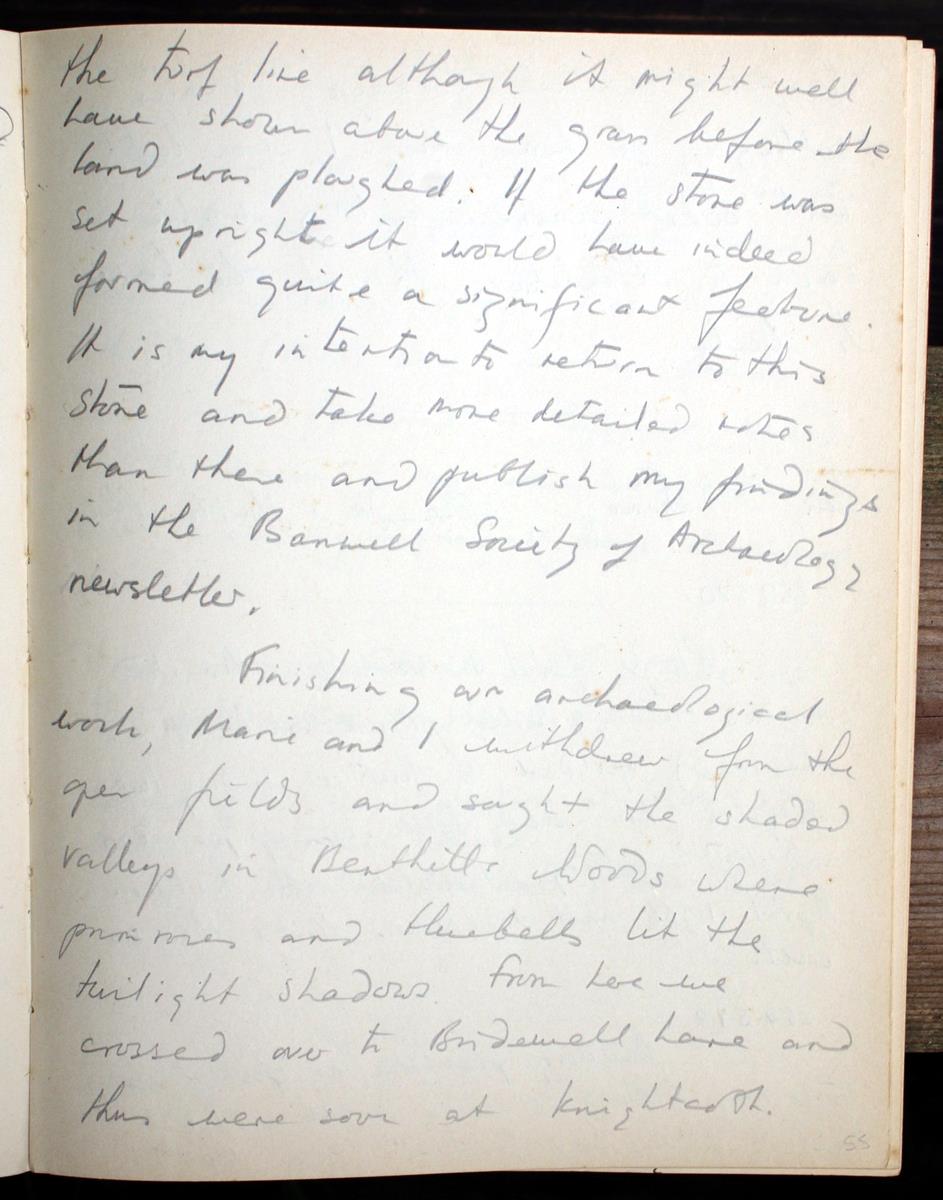 the turf line although it might well
have shown above the grass before the
land was ploughed. If the stone was
set upright it would have indeed
formed quite a significant feature.
It is my intention to return to this
stone and take more detailed notes
than these and publish my findings
in the Banwell Society of Archaeology
newsletter.
Finishing our archaeological
work, Marie and I withdrew from the
open fields and sought the shaded
valleys in Benthills Woods where
primroses and bluebells lit the
twilight shadows. From here we
crossed over to Bridewell Lane and
thus were soon at Knightcott.
55